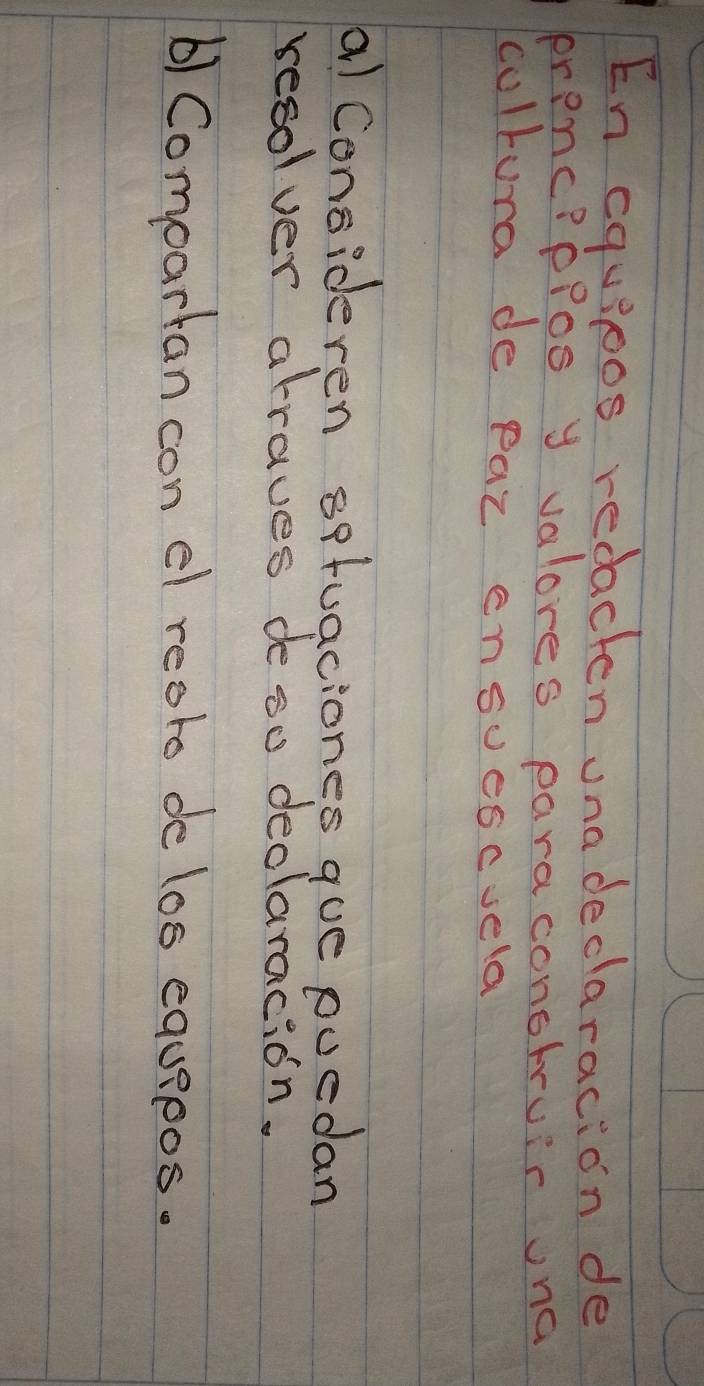 En equipos redacten una declaración de
principios y valores para construir una
cultura de paz en su escuela
a) Consideren situaciones que puedan
resolver atraves de su declaración.
b) Compartan con el resto de los equipos.